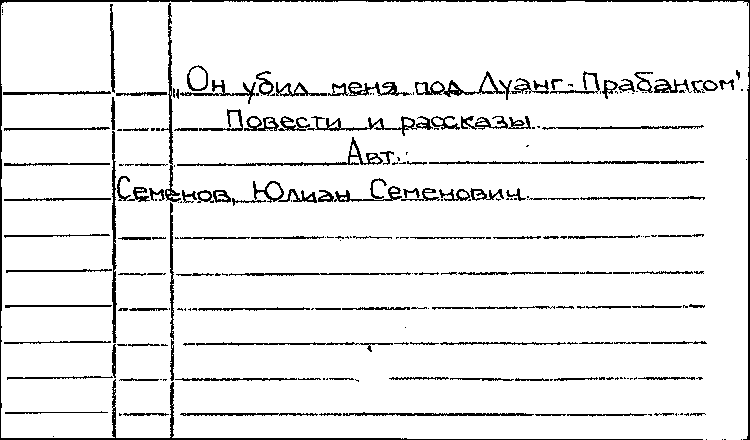 „Он убил меня под Луанг-Прабангом".
Повести и рассказы
Авт.:
Семенов, Юлиан Семенович